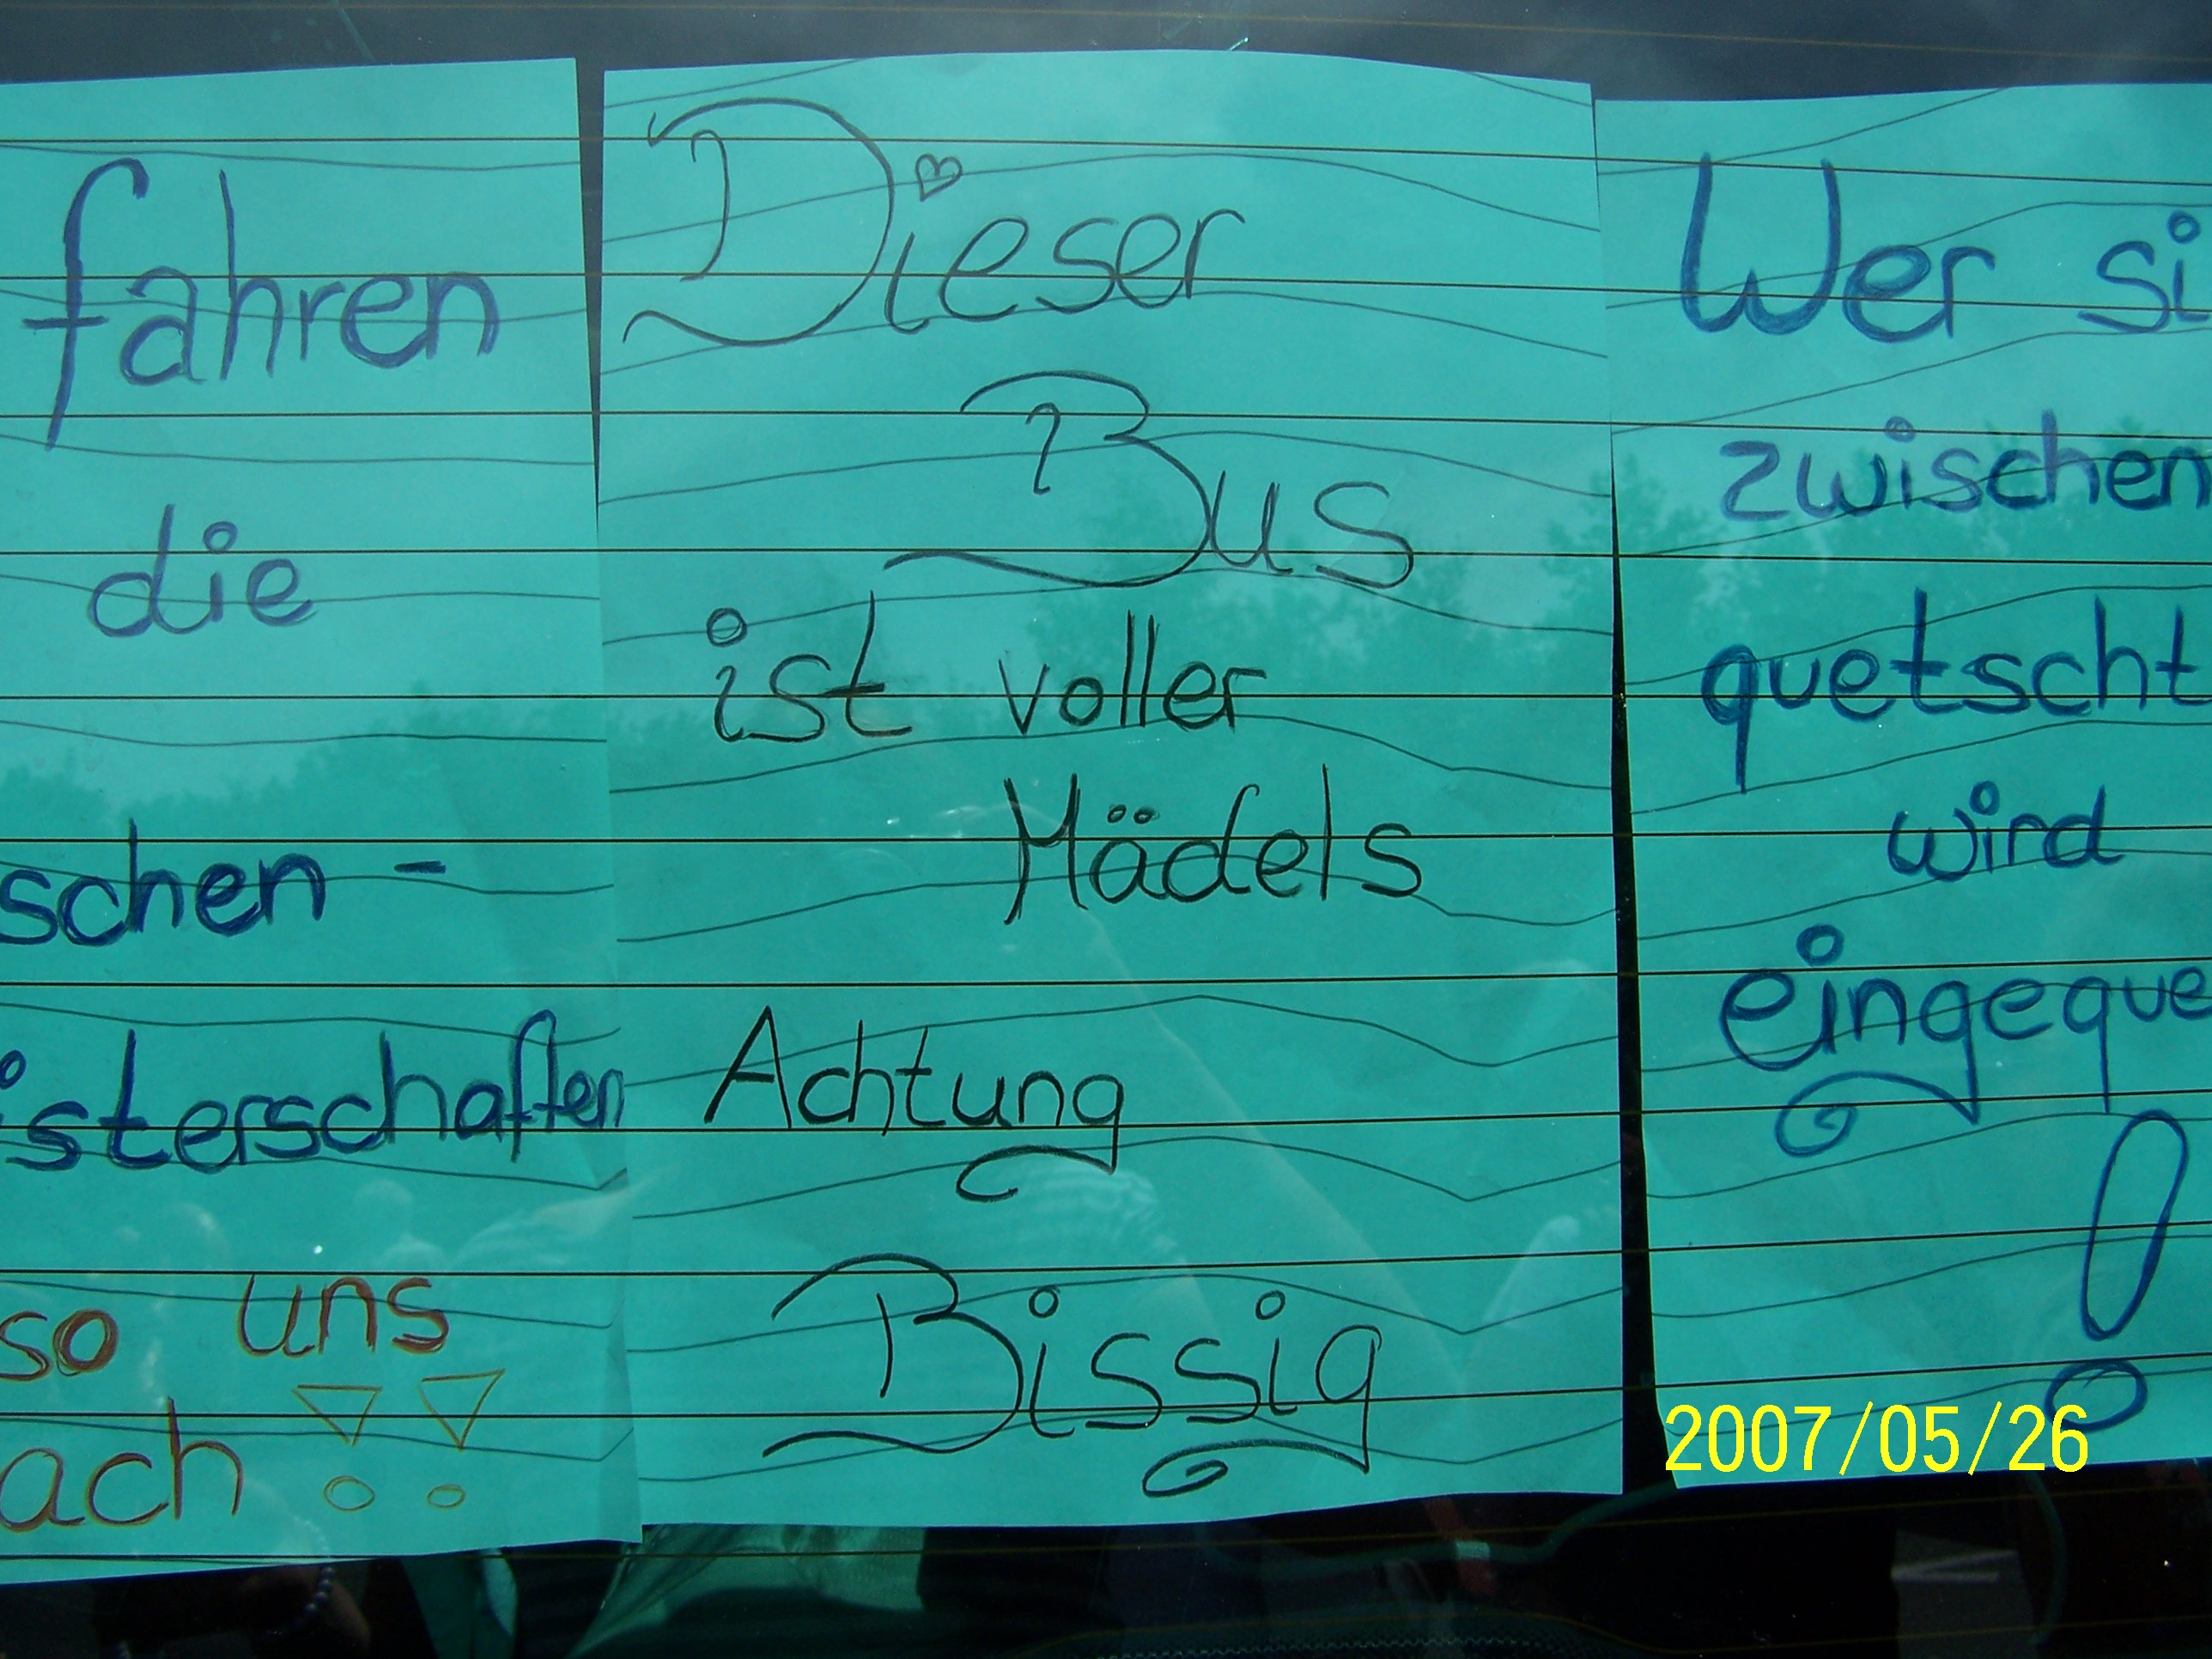 fahren
die
schen -
isterschaften
so uns
ach !!
Dieser
Bus
ist voller
Mädels
Achtung
Bissig
Wer si
zwischen
quetscht
wird
eingeque
!
2007/05/26